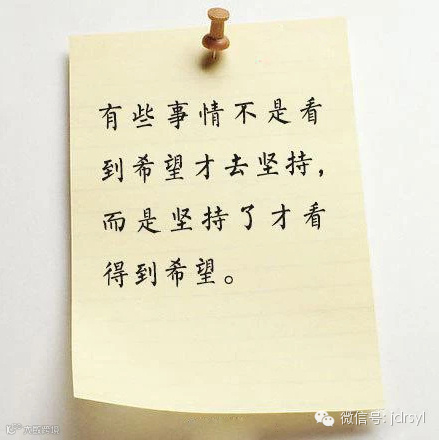 有些事情不是看
到希望才去坚持，
而是坚持了才看
得到希望。
微信号: jdrsyl